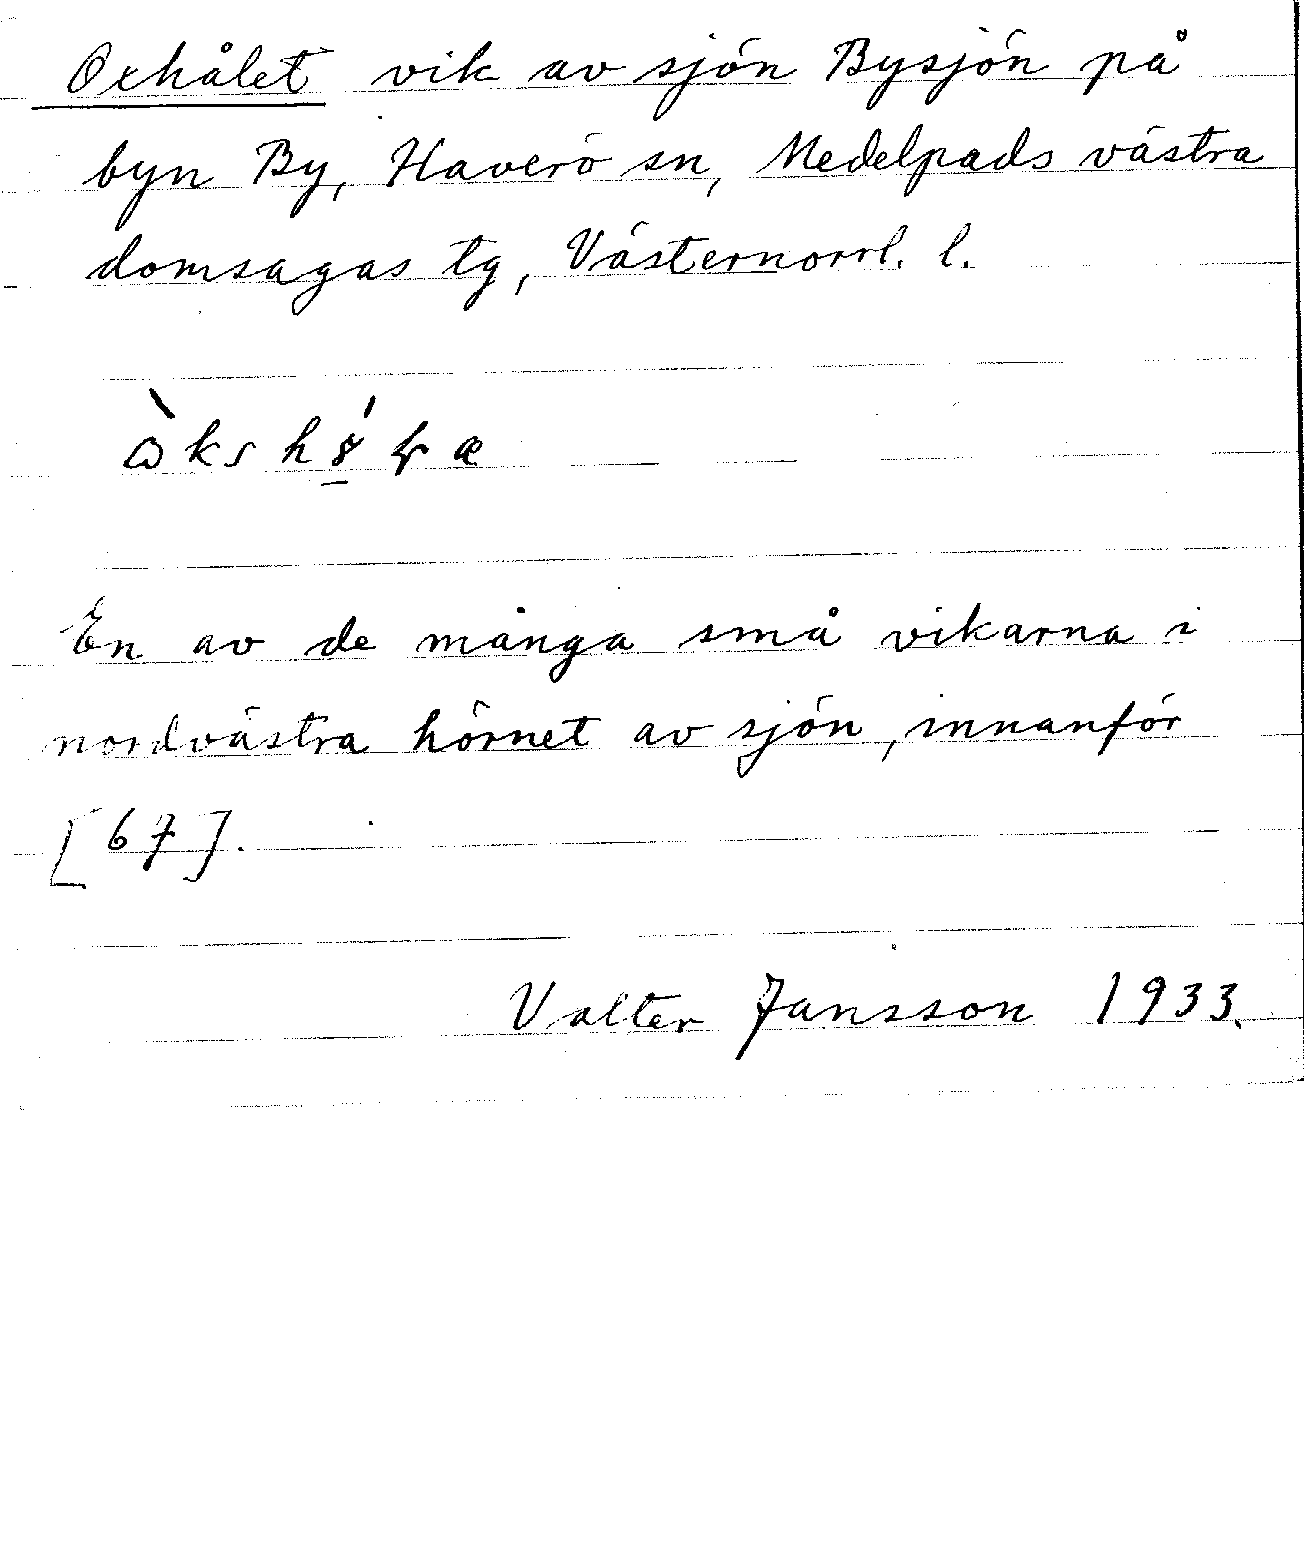 Oxhålet vik av sjön Bysjön på
byn By, Haverö sn, Medelpads västra
domsagas tg, Västernorrl. l.
En av de många små vikarna i
nordvästra hörnet av sjön, innanför
[67].
Valter Jansson 1933.